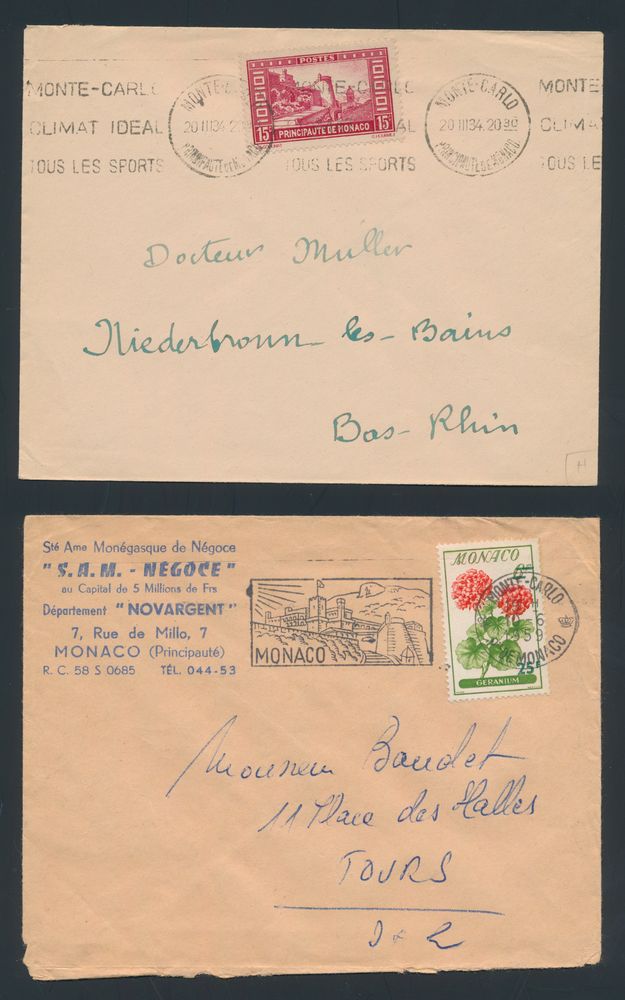 POSTES
15c 15c
PRINCIPAUTE DE MONACO
MONTE-CARLO MONTE-CARLO MONTE-CARLO MONTE
CLIMAT IDEAL 20 III 34.20 AL 20 III 34.20 30 CLIMA
TOUS LES SPORTS PRINCIPAUTE DE MONACO TOUS LES SPORTS PRINCIPAUTE DE MONACO TOUS LE
Docteur Müller
Niederbronn-les-Bains
Bas-Rhin
H
Sté Ame Monégasque de Négoce
"S.A.M. - NÉGOCE"
au Capital de 5 Millions de Frs
Département "NOVARGENT"
7, Rue de Millo, 7
MONACO (Principauté)
R. C. 58 S 0685 TÉL. 044-53
MONACO
MONACO
MONTE-CARLO
1959
MONACO
25f
GERANIUM
Monsieur Baudet
11 Place des Halles
TOURS
I & L